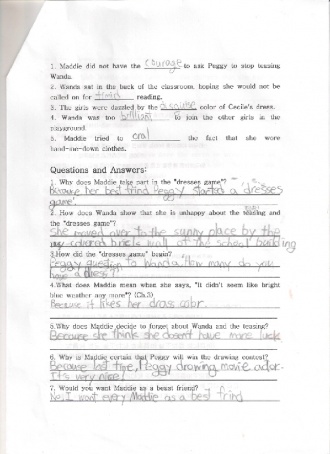 1. Maddie did not have the courage to ask Peggy to stop teasing
Wanda.
2. Wanda sat in the back of the classroom, hoping she would not be
called on for reading.
3. The girls were dazzled by the color of Cecile's dress.
4. Wanda was too brilliant to join the other girls in the
playground.
5. Maddie tried to oral the fact that she wore
hand-me-down clothes.
Questions and Answers:
1. Why does Maddie take part in the "dresses game"?
Because her best frind Peggy started a dresses
game'.
2. How does Wanda show that she is unhappy about the teasing and
the "dresses game"?
She moved over to the sunny place by the
wall of the school building
3.How did the "dresses game" begin?
Peggy question to Wanda, "How many do you
have a dress"
4.What does Maddie mean when she says, "It didn't seem like bright
blue weather any more"? (Ch.5)
Because it likes her dress color.
5.Why does Maddie decide to forget about Wanda and the teasing?
Because she think she doesn't have more luck
6. Why is Maddie certain that Peggy will win the drawing contest?
Because last time, Peggy drowing movie actor.
It's very nice!
7. Would you want Maddie as a beast friend?
No, I want every Maddie as a best frind